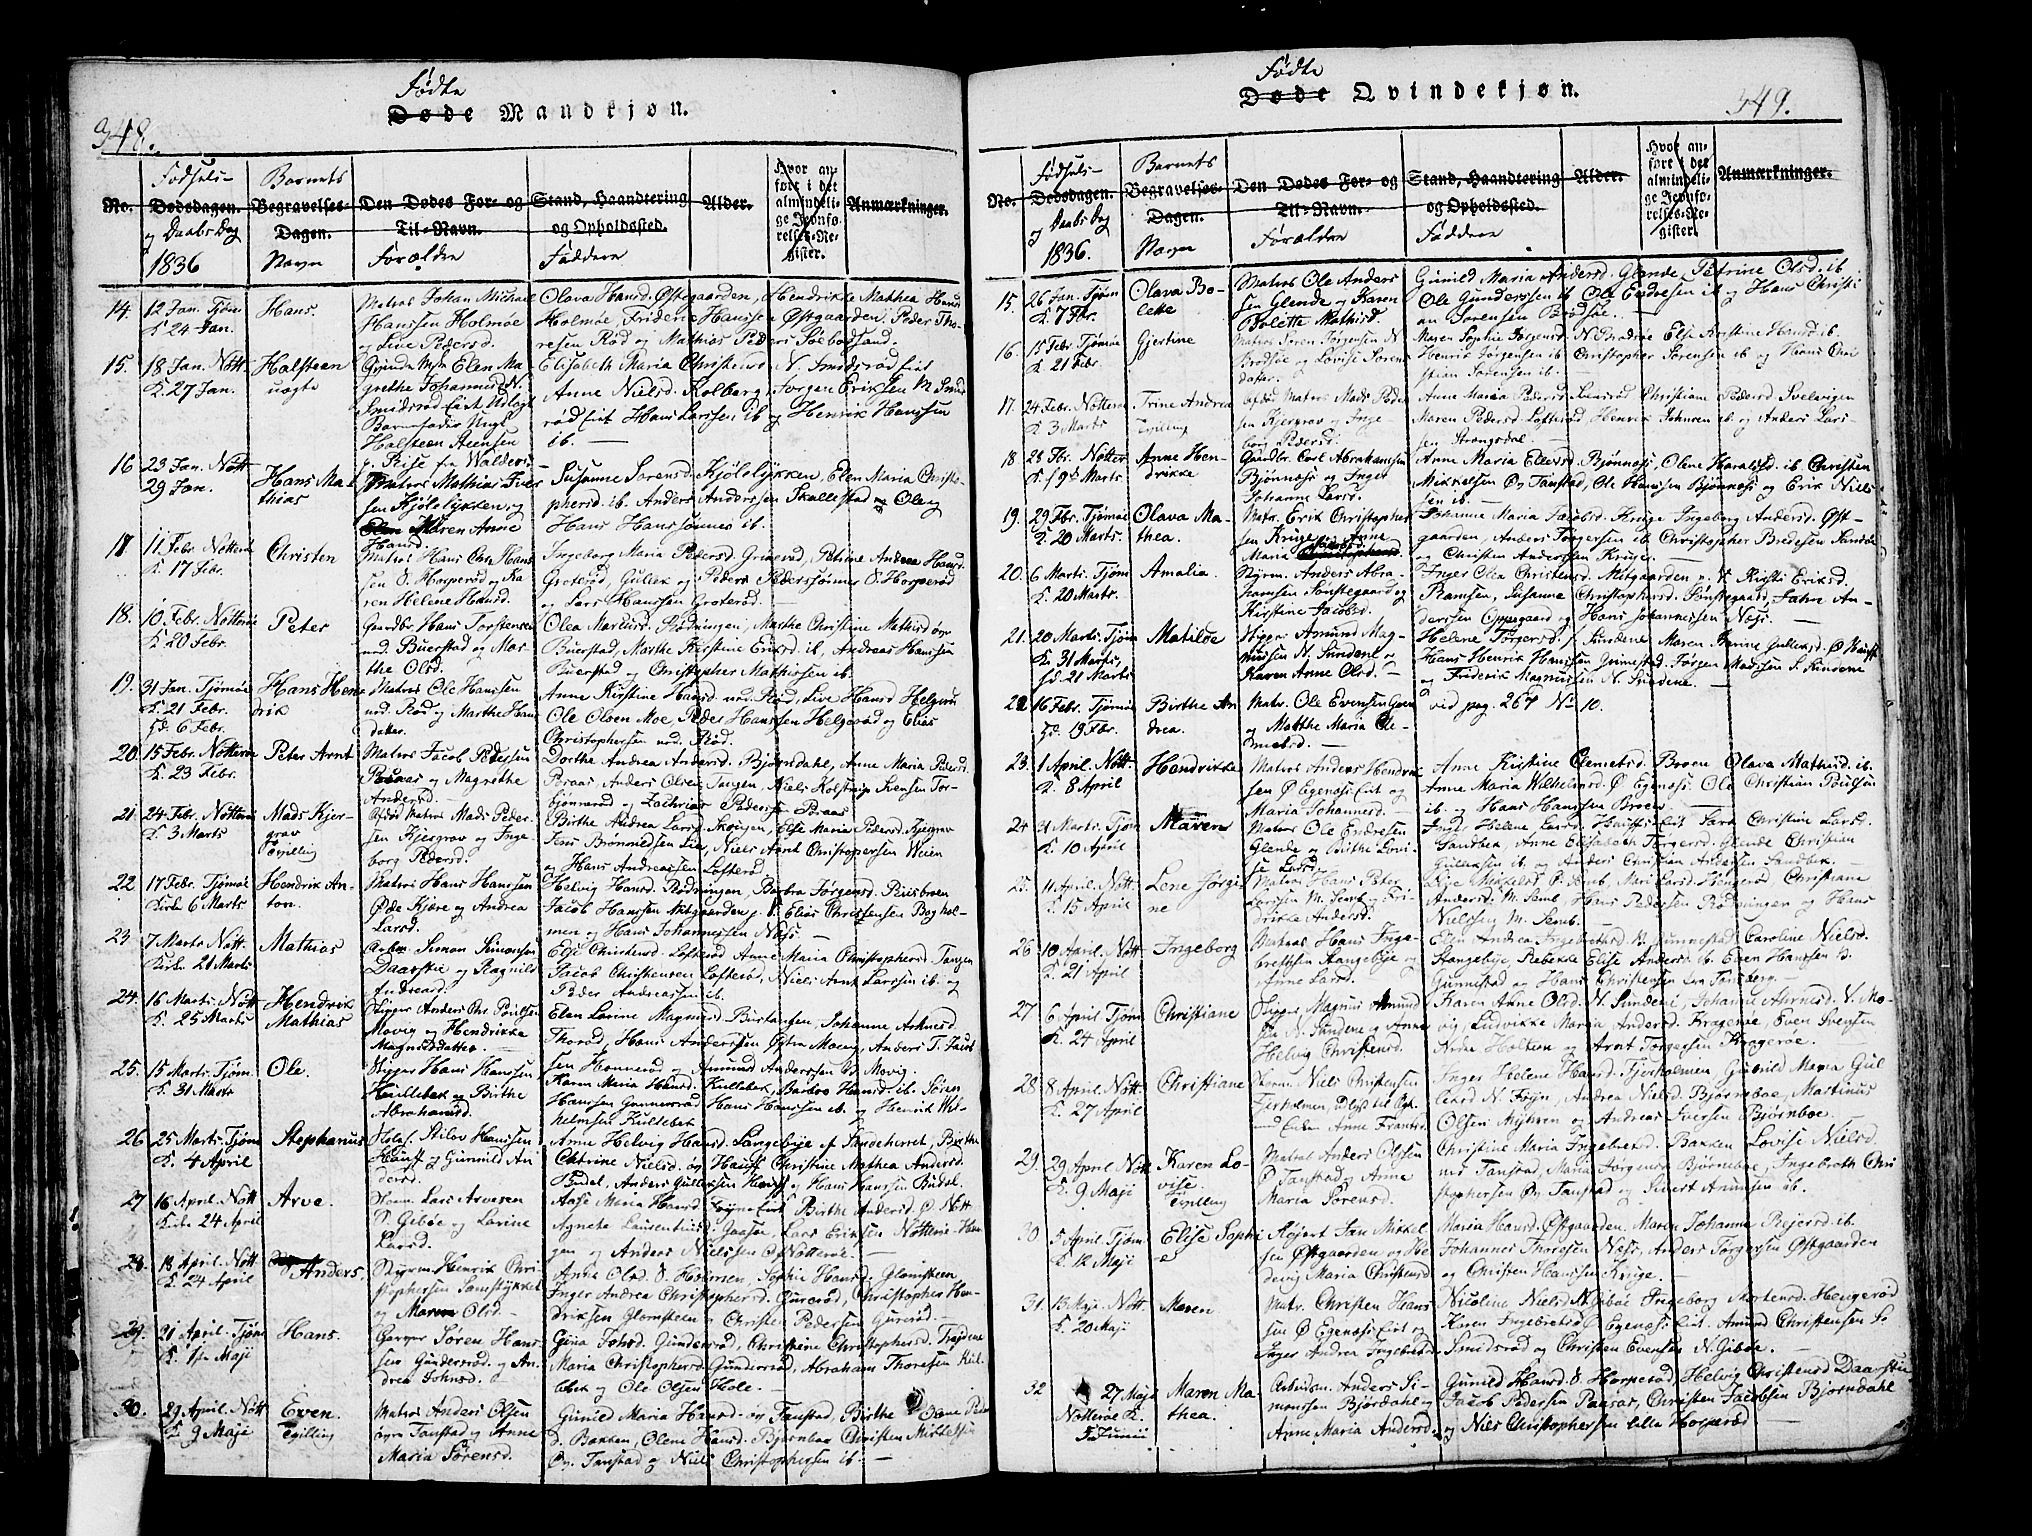 348.
Fødte
Døde Mandkjøn.
No.
Fødsels-
Dødsdagen.
og Daabs Dag
1836
Barnets
Begravelses-
Dagen.
Navn
Den Dødes For- og
Til-Navn.
Forældre
Stand, Haandtering
og Opholdssted.
Faddere
Alder.
Hvor an-
ført i det
almindeli-
ge Jevnfø-
relses-Re-
gister.
Anmærkninger.
14. 12 Jan. Tjøm
K. 24 Jan.
Hans.
Matros Johan Michael
Hanssen Holmøe
og Live Pedersd.
Olava Hansd. Østgaarden, Hendrikke Mathea Hansd
Holmøe, Frideric Hanssen Østgaarden Peder Tho-
resen Rød og Mathias Peders
15. 18 Jan. Nøtt
K. 27 Jan.
Halsteen
uægte
Elen Ma-
grethe Johannesd. N.
Smidsrød
Barnefader Ungk.
Halsteen
Elisabeth Maria Christensd N. Smidsrød Eiet
Anne Nielsd. Kolberg, Jørgen Eriksen M. Smids
rød Eiet Hans Larssen ib og Henrik Hanssen
ib. —
16 23 Jan. Nøtt
29 Jan.
Hans Ma-
thias
Matros Mathias Iver-
sen Kjøleløkken og
Maren Anne
Hansd.
Susanne Sørensd. Kjøleløkken, Elen Maria Christo-
phersd. ib. Anders Anderssen Skallestad og Ole og
Hans Hanssønner ib.
17 11 Febr. Nøtterø
K. 17 Febr.
Christen
Matros Hans Chr. Hans
sen Ø. Horperød og Ka-
ren Helene Hansd.
Ingeborg Maria Pedersd. Grimerød, Petrine Andrea Hansd.
Groterød, Gullek og Peder Pederssønner Ø. Horperød
og Lars Hanssen Groterød.
18. 10 Febr. Nøtterøe
K. 20 Febr.
Peter
Gaardbr Hans Torstensen
ned. Buerstad og Mar-
the Olsd.
Olea Matiisd. Rødningen, Marthe Christine Mathisd øv
Buerstad, Marthe Kirstine Eriksd. ib, Andreas Hanssen
Buerstad og Christopher Mathiesen ib.
19. 31 Jan. Tjømøe
K. 21 Febr.
hd. 6 Febr.
Hans Hen
drik
Matros Ole Hanssen
ned. Rød og Marthe Hans
datter.
Anne Kirstine Hansd. ned Rød, Live Hansd Helgerød
Ole Olsen Moe Peder Hanssen Helgerød og Elias
Christophersen ned. Rød.
20. 15 Febr. Nøtterøe
K. 23 Febr.
Peter Arnt
Matros Jacob Pederssen
Paaas og Magrethe
Andersd.
Dorthe Andrea Andersd. Bjørndahl, Anne Maria Pedersd.
Paaas, Anders Olsen Tangen, Niels Kolstrup Svensen Tor-
bjønnerød og Zachrias Pederssen Paaas
21. 24 Febr. Nøtterøe
K. 3 Marts
Mads Kjer-
grav
Tvilling
Matros Mads Peder-
sen Kjergrav og Inge
borg Pedersd.
Birthe Andrea Larsd. Skougen, Else Maria Pedersd. Kjergrav
Jens Brønnildsen Lie, Niels Arnt Christophersen Weien
og Hans Andreassen Lofterød.
22 17 Febr. Tjømøe
Kirke 6 Marts
Hendrik An-
ton.
Matros Hans Hanssen
Øde Kjære og Andrea
Larsd.
Helvig Hansd. Rødningen, Barbra Jørgensd.
Jacob Hanssen Mitgaarden, Elias Christensen Bughol-
men og Hans Johannessen Næss. —
23 7 Marts Nøtt.
Kirke. 21 Marts
Mathias
Simon Simonsen
Daarstie og Ragnild
Andreasd.
Else Christensd. Lofterød Anne Maria Christophersd. Tangen
Jacob Christensen Lofterød, Niels Arnt Larssen ib. og
Peder Andreassen ib.
24. 16 Marts Nøtt
K. 25 Marts
Hendrik
Mathias
Skipper Anders Chr. Poulsen
Movig og Hendrikke
Magnusdatter.
Elen Lovine Magnusd. Burtangen, Johanne Arnesd.
Thorød, Hans Anderssen Østre Moevig, Anders T.
sen Honnerød og Amund Anderssen V. Movig.
25. 15 Marts Tjøm.
K. 31 Marts
Ole.
Skipper Hans Hanssen
Kullebek og Birthe
Abrahamsd.
Karen Maria Hansd. Kullebek, Barbro Hansd. ib. Søren
Hanssen Gunnersrød Hans Hanssen ib. og Henrik Wil-
helmsen Kullebek.
26 25 Marts. Tjøm
K. 4 April
Stephanus
Stilov Hanssen
Hauff og Gunnild An-
dersd.
Anne Helvig Hansd. Langebye af Sandeherret, Birthe
Cathrine Nielsd. og Hauff Christine Mathea Andersd.
Budal, Anders Gulleksen Hauff og Hans Hanssen Budal.
27. 16 April. Nøtt
Kirke 24 April
Arve.
Lars Arvesen
Ø. Gibøe og Lovine
Larsd.
Aase Maria Hansd. Føyneiet, Birthe Andersd. Ø. Nøtt
Agnete Laurentiusd. Jaasøn, Lars Eriksen Nøtterøe-Han-
gen og Anders Nielssen Ø. Nøtterøe.
28. 18 April. Nøtt
K. 24 April
Anders.
Henrik Chri-
stophersen Sønstykket
og Maren Olsd. —
Anne Olsd. Ø. Holmen, Sophie Hansd. Glomsteen
Inger Andrea Christophersd. Gurerød, Christopher Hen-
driksen Glomsteen og Christen Pedersen Gurerød.
29. 21 April. Tjøm
K. 1 Maji
Hans.
Søren Hans
sen Gundersrød. og An-
drea Johnsd.
Gina Johnsd. Gundersrød, Christine Christophersd.
Maria Christophersd. Gundersrød, Abraham Thoresen Kul-
lebek og Ole Olsen Hole.
30. 29 April. Nøtt
K. 9 Maji
Even.
Tvilling
Matros Anders Olsen
øvre Tanstad og Anne
Maria Sørensd.
Gunild Maria Hansd. øv Tanstad, Birthe
d. Bakken, Olene Hansd. Bjørnboe Christen Mikkelsen
Øv. Tanstad og Niels Christophersen ib. —
349.
Fødte
Døde Qvindekjøn.
No.
Fødsels-
Dødsdagen.
og Daabs Dag
1836.
Barnets
Begravelses-
Dagen.
Navn
Den Dødes For- og
Til-Navn.
Forældre
Stand, Haandtering
og Opholdssted.
Faddere
Alder.
Hvor an-
ført i det
almindeli-
ge Jevnfø-
relses-Re-
gister.
Anmærkninger.
15. 26 Jan. Tjøm
K. 7 Fbr.
Olava Bo-
lette
Matros Ole Anders
sen Glende og Karen
Bolette Mathisd.
Gunild Maria Andersd. Glende, Petrine Olsd. ib
Ole Gunderssen ib Ole Endresen ib og Hans Christi
an Sørensen Brødsøe.
16. 15 Febr. Tjømøe
K. 21 Febr.
Gjertine
Matros Søren Jørgensen N
Brødsøe og Lovise Sørens
datter.
Maren Sophie Jørgensd N. Brødsøe Else Kirstine Hansd ib.
Henrik Jørgensen ib. Christopher Sørensen ib og Hans Chri
stian Sørensen ib.
17. 24 Febr. Nøtterøe
K 3 Marts
Trine Andrea
Tvilling
Matros Mads Peder
sen Kjergrav og Inge-
borg Pedersd.
Anne Maria Pedersd. Christian Pedersd. Svelvigen
Maren Pedersd Lofterød Henrik Johnsen ib og Anders Lars-
sen Strengsdal. —
18. 28 Fbr. Nøtter
K. 9 Marts
Anne Hen-
drikke
Gaardbr. Carl Abrahamsen
Bjønnæss og Inger
Johanne Larsd.
Anne Maria Ellevsd. Bjønnæss, Olene Haralsd. ib Christen
Mikkelsen Øv Tanstad, Ole Hanssen Bjønnæss og Erik Niels
sen ib. —
19. 29 Fbr. Tjømøe
K. 20 Marts
Olava Ma-
thea.
Matr. Erik Christopher
sen Kruge. Anne
Maria Jacobsd.
Johanne Maria Jacobsd. Kruge Ingeborg Andersd. Øst-
gaarden, Anders Torgersen ib. Christopher Bredesen Sandøe
og Christen Anderssen Kruge.
20. 6 Marts. Tjøm
K. 20 Marts.
Amalia.
Anders Abra-
hamsen Sønstegaard og
Kirstine Jacobsd.
Inger Olea Christensd. Mitgaarden p. V. Kirsti Eriksd.
Ramsen, Susanne Christophersd. Sønstegaard, Jahn An-
derssen Oppegaard og Hans Johannessen Næss.
21. 20 Marts. Tjøm
K. 31 Marts.
hd. 21 Marts
Matilde
Skipper Amund Mag-
nussen N. Sundene og
Karen Anne Olsd. —
Helene Torgersd. Sundene Maren Janne Gulleksd. Ø
Hans Henrik Hanssen Grimestad. Jørgen Madssen S. Sundene
og Friderik Magnussen N. Sundene. —
22 16 Febr. Tjømøe
hd. 19 Fbr.
Birthe An
drea.
Matr. Ole Evensen
og Marthe Maria Cle-
metsd. —
vid pag. 267 No 10.
23. 1 April. Nøtt.
K. 8 April
Hendrikke
Matros Anders Hendrik
sen Ø Egenæss Eiet og
Maria Johannesd.
Anne Kirstine Clemetsd. Broen Olava Mathisd. ib.
Anne Maria Wilhelmsd. Ø Egenæss. Ole Christian Poulsen
ib. og Hans Hanssen Broen.
24 31 Marts. Tjøm
K. 10 April
Maren
Matros Ole Endresen
Glende og Birthe Lovi-
se Larsd.
Inger Helene Larsd. Hauffs-Eiet Sara Christine Larsd.
Sandbek, Anne Elisabeth Torgersd. Glende Christian
Gulleksen ib. og Anders Christian Andersen Sandbek. —
25. 11 April. Nøtt
K. 15 April
Lene Jørgi
ne
Matros Hans Peter
Larssen M. Semb og Fri-
drikke Andersd.
Else Mikkelsd. Ø. Semb, Mari Larsd. Hengerød Christiane
Andersd. M. Semb Hans Pedersen Rødningen og Hans
Nielssen M. Semb.
26. 10 April. Nøtt
K. 21 April
Ingeborg
Hans Inge-
bretssen Hangebye og
Anne Larsd.
Elen Andrea Ingebretsd. N. Gunnestad Caroline Nielsd.
Hangebye, Rebekke Elise Andersd. ib Even Hanssen Ø.
Gunnestad og Hans Christensen fra Tønsberg.
27 6 April Tjøm
K. 24 April
Christiane
Skipper Magnus Amund
sen N. Sundene og Anne
Helvig Christensd.
Karen Anne Olsd. N. Sundene, Johanne Arnesd. V. Mo-
vig, Ludvikke Maria Andersd. Kragerøe, Even Svensen
Nedre Holten og Arnt Torgersen Kragerøe.
28. 8 April. Nøtt.
K. 27 April
Christiane
Niels Christensen
Tjerholmen,
Anne Frantsd.
Inger Helene Hansd. Tjerholmen Gunild Maria Gul
leksd N. Føyn, Andrea Nielsd. Bjørnboe, Martinus
Olsen Myhren og Andreas Iversen Bjørnboe.
29. 29 April Nøtt
K. 9 Maji
Karen Lo-
vise.
Tvilling
Matros Anders Olssen
Ø Tanstad og Anne
Maria Sørensd.
Christine Maria Ingebretsd. Bakken Lovise Nielsd.
Tanstad, Maria Jørgensd. Bjørneboe, Ingebreth Chri
stophersen Øv Tanstad og Sivert Amunsen ib.
30 5 April. Tjøm
K. 12 Maji
Elise Sophi
e
Jan Mikkel
sen Østgaarden og He
devig Maria Christensd
Maria Hansd. Østgaarden, Maren Johanne Rejersd. ib.
Johannes Thoresen Næss, Anders Torgersen Østgaarden
og Christen Hanssen Kruge.
31. 13 Maji. Nøtt.
K. 20 Maji
Maren
Matr. Christen Hans
sen Ø Egenæss Eiet og
Inger Andrea Ingebretsd.
Nicoline Nielsd N. Gibøe Ingeborg Mortensd. Hengerød
Karen Ingebretsd Egenæss Eiet. Amund Christensen S.
Smidsrød og Christen Evensen N. Gibøe.
32 27 Maji
Nøtterøe K.
5 Junii
Maren Ma-
thea.
Arbeidsm. Anders Si-
monssen Bjørdahl og
Anne Maria Andersd.
Gunild Hansd. Ø. Horperød Helvig Christensd Daarstie
Jacob Pedersen Paaaas, Christen Jacobsen Bjørndahl
og Niels Christophersen lille Horperød